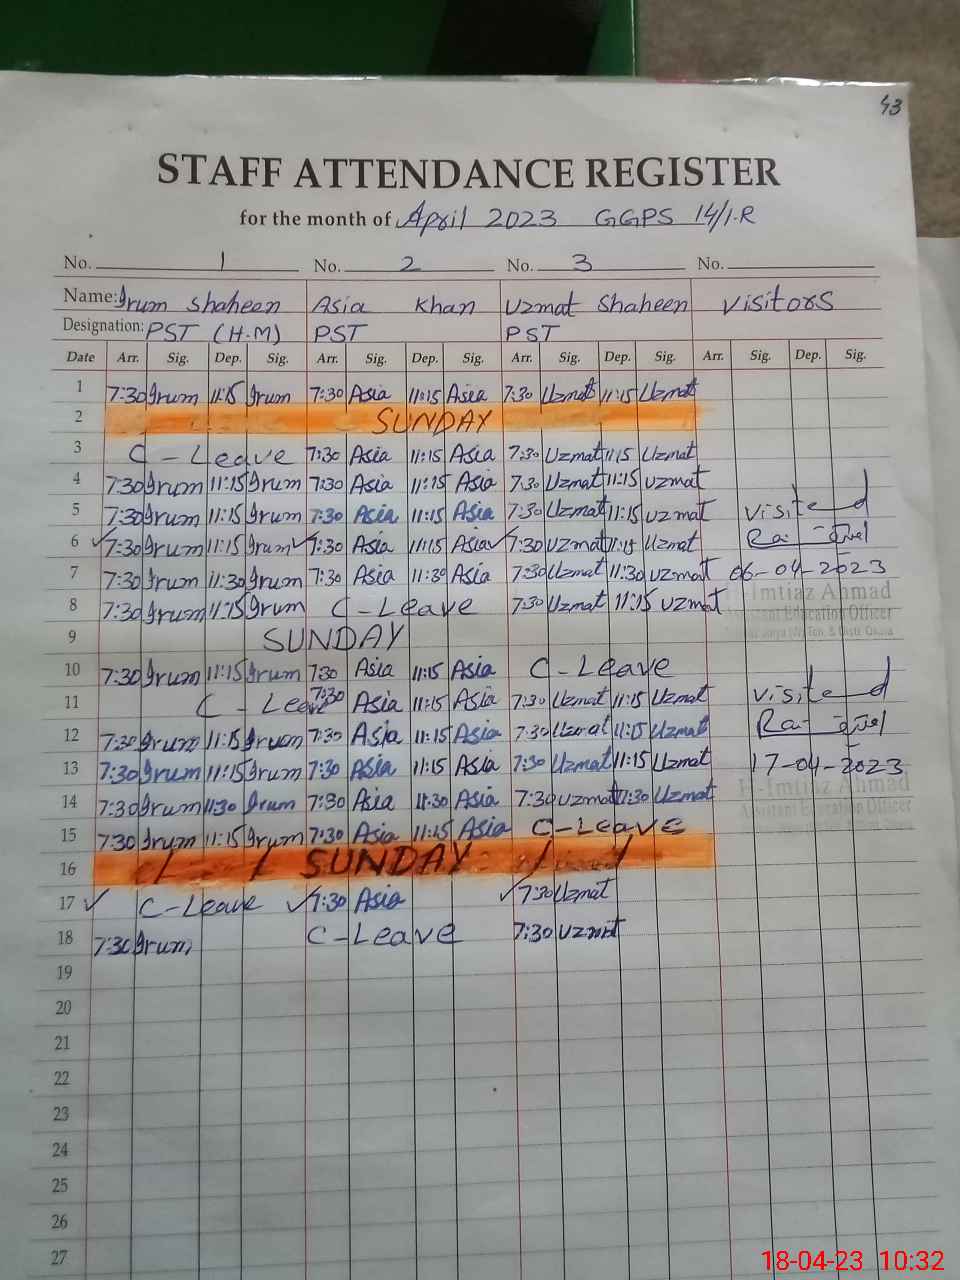 43
STAFF ATTENDANCE REGISTER
for the month of April 2023 GGPS 14/1-R
No. 1 No. 2 No. 3 No.
Name: Irum Shaheen Asia Khan Uzmat Shaheen Visitors
Designation: PST (H.M) PST PST
Date Arr. Sig. Dep. Sig. Arr. Sig. Dep. Sig. Arr. Sig. Dep. Sig. Arr. Sig. Dep. Sig.
1 7:30 Irum 11:15 Irum 7:30 Asia 11:15 Asia 7:30 Uzmat 11:15 Uzmat
2 SUNDAY
3 C-Leave 7:30 Asia 11:15 Asia 7:30 Uzmat 11:15 Uzmat
4 7:30 Irum 11:15 Irum 7:30 Asia 11:15 Asia 7:30 Uzmat 11:15 Uzmat
5 7:30 Irum 11:15 Irum 7:30 Asia 11:15 Asia 7:30 Uzmat 11:15 Uzmat visited
6 7:30 Irum 11:15 Irum 7:30 Asia 11:15 Asia 7:30 Uzmat 11:15 Uzmat
7 7:30 Irum 11:30 Irum 7:30 Asia 11:30 Asia 7:30 Uzmat 11:30 Uzmat 06-04-2023
H-Imtiaz Ahmad
8 7:30 Irum 11:15 Irum C-Leave 7:30 Uzmat 11:15 Uzmat
Assistant Education Officer
9 SUNDAY
10 7:30 Irum 11:15 Irum 7:30 Asia 11:15 Asia C-Leave
11 C-Leave 7:30 Asia 11:15 Asia 7:30 Uzmat 11:15 Uzmat visited
12 7:30 Irum 11:15 Irum 7:30 Asia 11:15 Asia 7:30 Uzmat 11:15 Uzmat
13 7:30 Irum 11:15 Irum 7:30 Asia 11:15 Asia 7:30 Uzmat 11:15 Uzmat 17-04-2023
H-Imtiaz Ahmad
14 7:30 Irum 11:30 Irum 7:30 Asia 11:30 Asia 7:30 Uzmat 11:30 Uzmat
Assistant Education Officer
15 7:30 Irum 11:15 Irum 7:30 Asia 11:15 Asia C-Leave
16 SUNDAY
17 C-Leave 7:30 Asia 7:30 Uzmat
18 7:30 Irum C-Leave 7:30 Uzmat
19
20
21
22
23
24
25
26
27
18-04-23 10:32